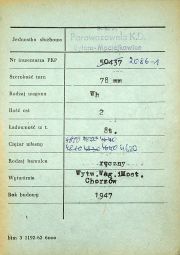 Jednostka służbowa
Parowozownia K.D.
Bytom-Maciejkowice
Nr inwentarza PKP 50437 2086-1
Szerokość toru 78 mm
Rodzaj wagonu Wh
Ilość osi 2
Ładowność w t. 8t.
Ciężar własny
Rodzaj hamulca ręczny
Wytwórnia Wytw.Wag.iMost.
Chorzów
Rok budowy 1947